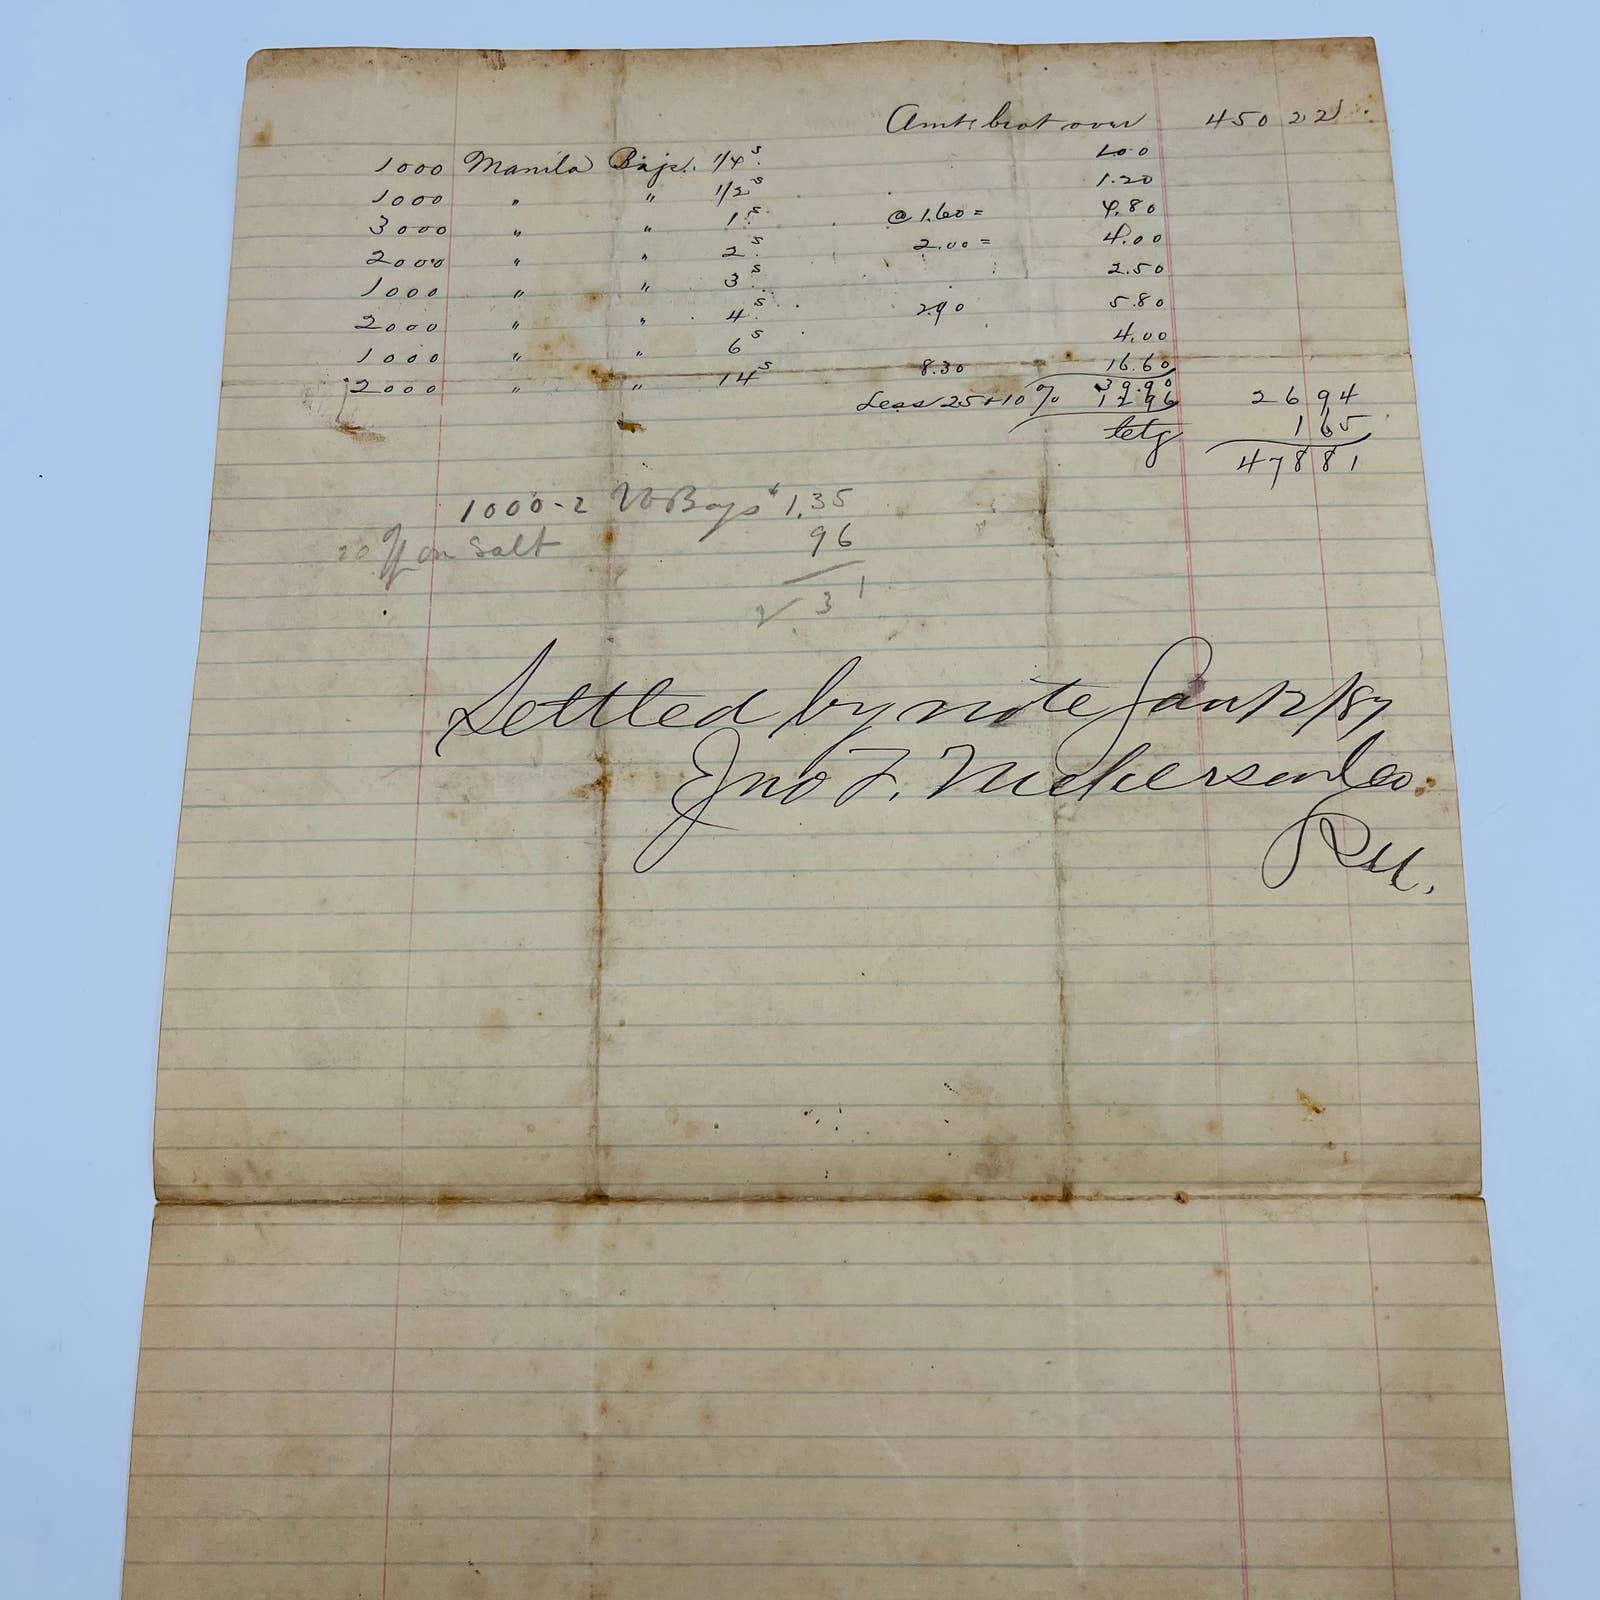 Amt brot over 450 22
1000 Manila Bags. 1/4s. 1.00
1000 " " 1/2s 1.20
3000 " " 1s. @ 1.60 = 4.80
2000 " " 2s. 2.00 = 4.00
1000 " " 3s. 2.50
2000 " " 4s. 2.90 5.80
1000 " " 6s 4.00
2000 " " 14s 8.30 16.60
39.90
Less 25 + 10 % 12 96 26 94
1 65
478 81
1000-2 Bags 1.35
20 on Salt 96
2 31
Settled by note Jan 12/87
Jno F. Nickerson Co